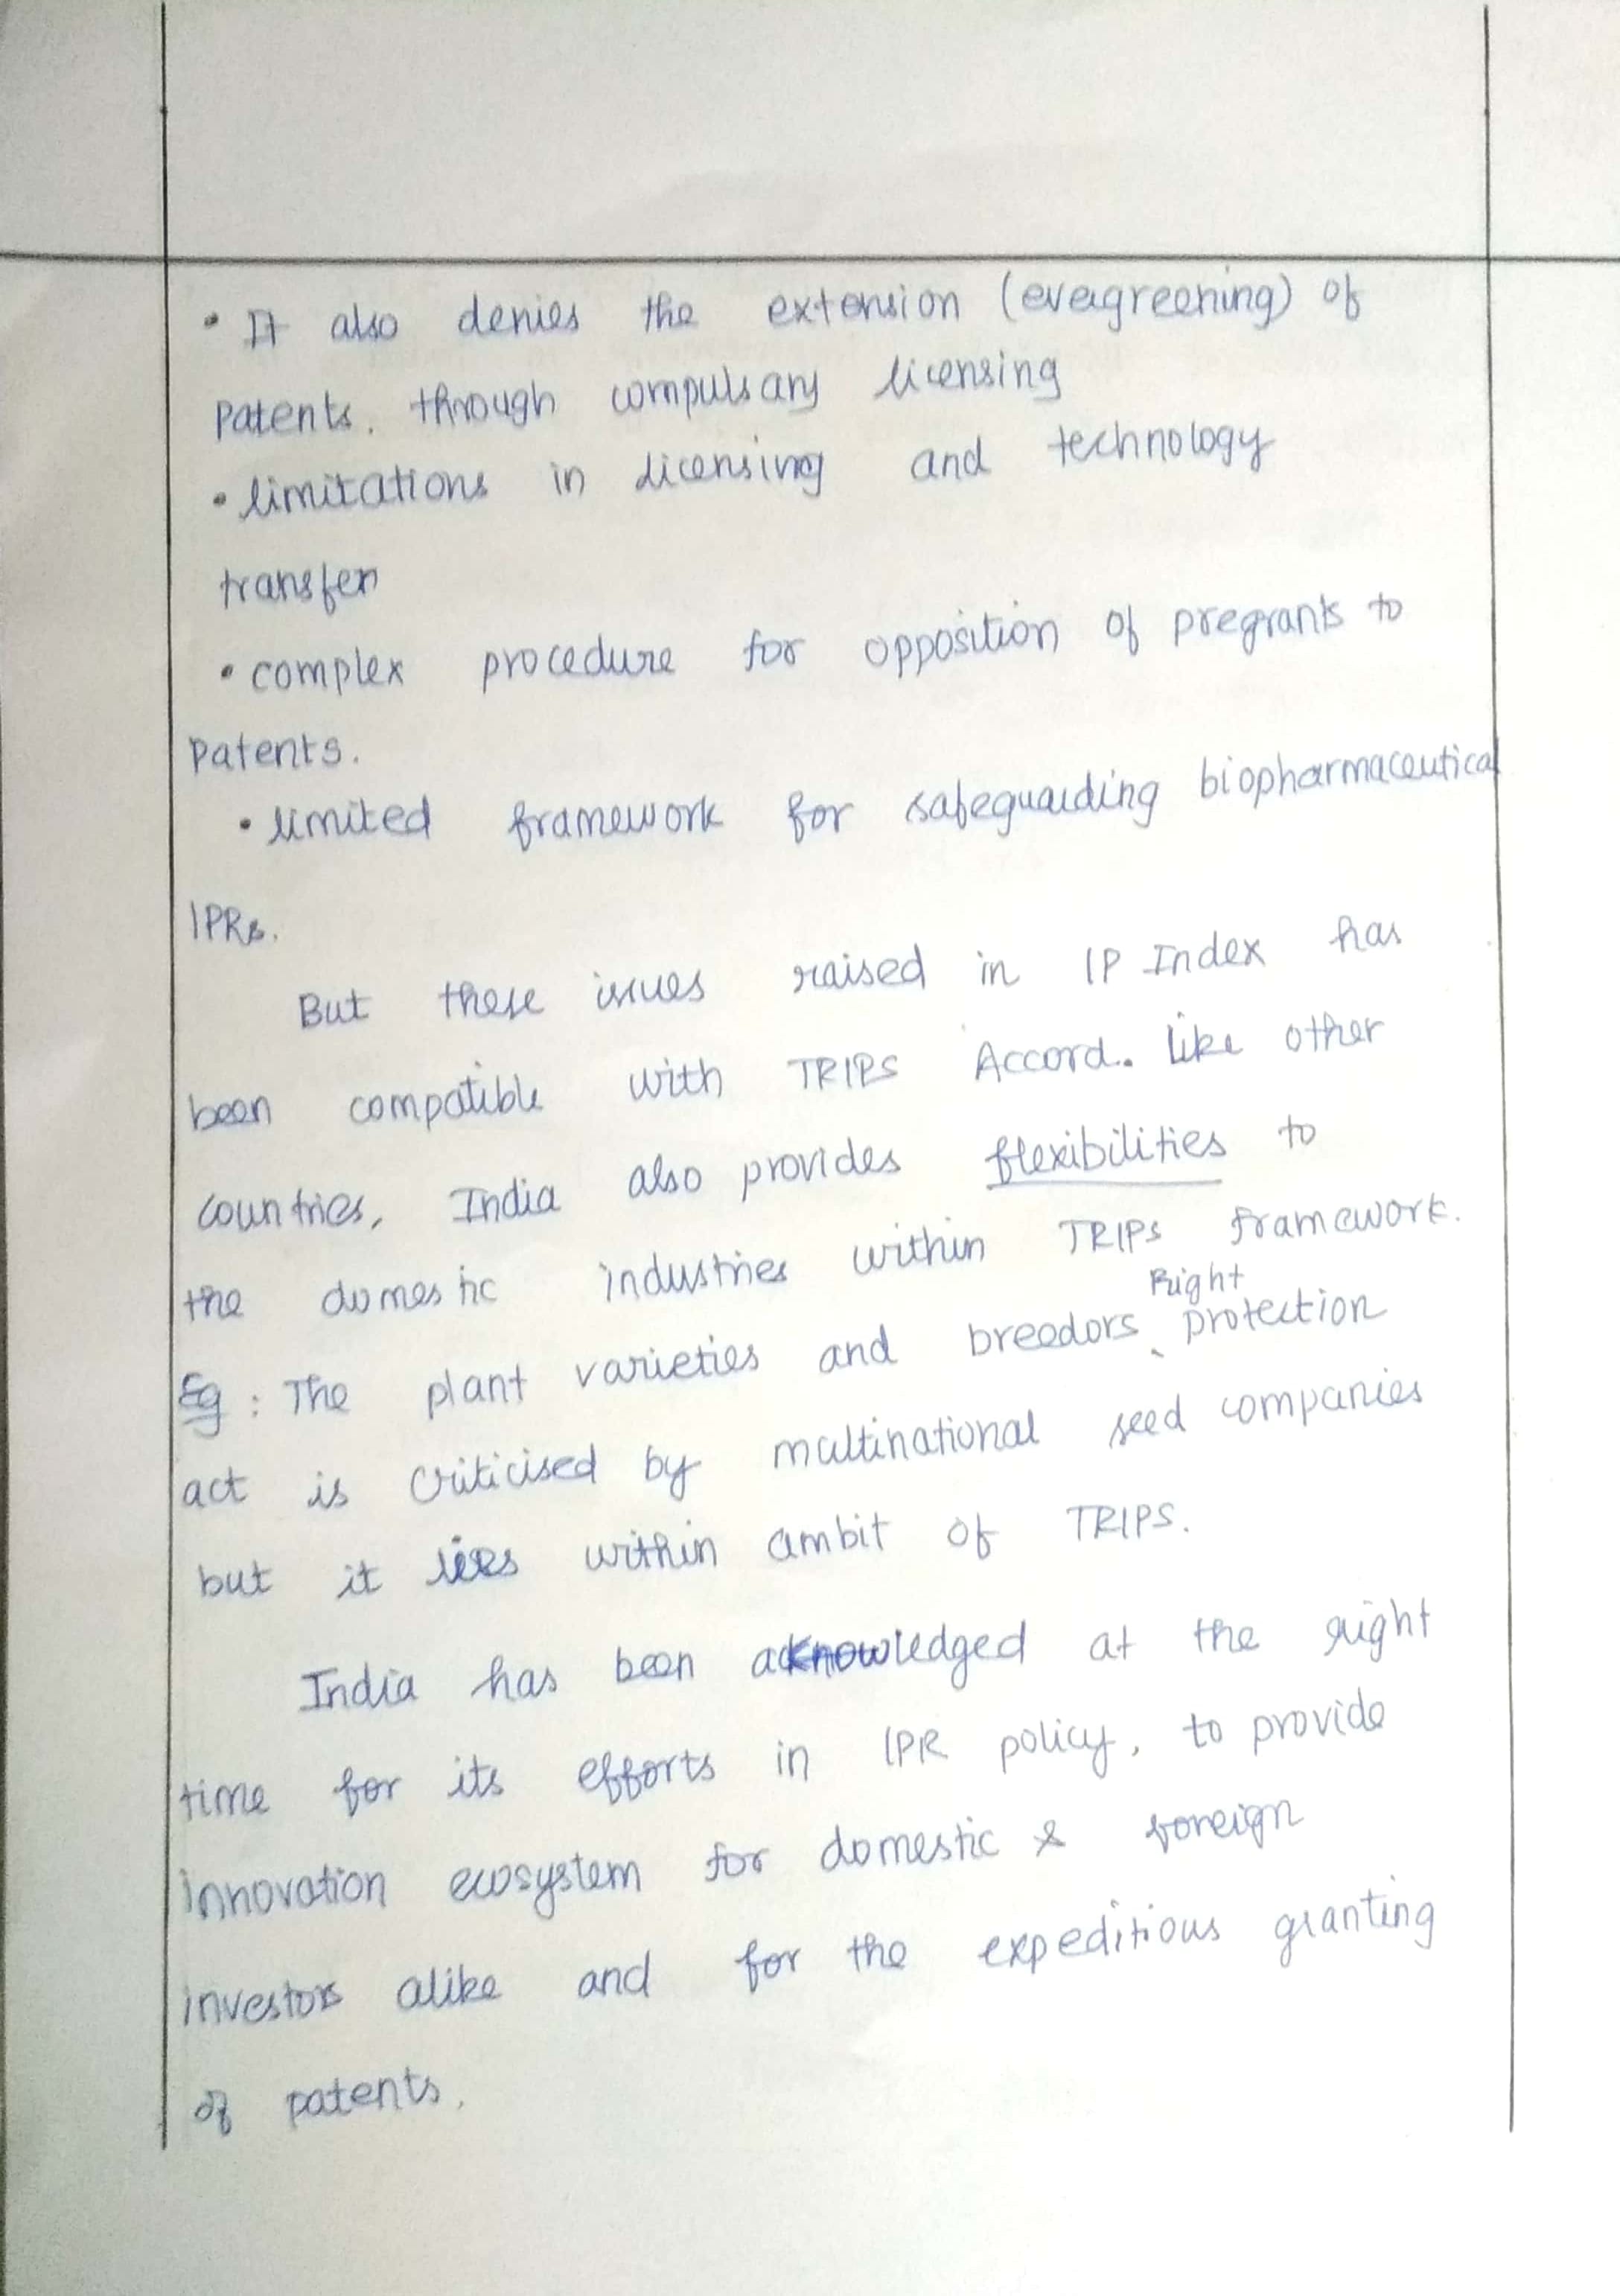 • It also denies the extension (evergreening) of
patents. through compulsary licensing
• limitations in licensing and technology
transfer
• complex procedure for opposition of pregrants to
patents.
• limited framework for safeguarding biopharmaceutical
IPRs.
But these issues raised in IP Index has
been compatible with TRIPS Accord.. Like other
countries, India also provides flexibilities to
the domestic industries within TRIPS framework.
Right
Eg : The plant varieties and breedors protection
act is criticised by multinational seed companies
but it lies within ambit of TRIPS.
India has been acknowledged at the right
time for its efforts in IPR policy, to provide
innovation ecosystem for domestic & foreign
investors alike and for the expeditious granting
of patents.